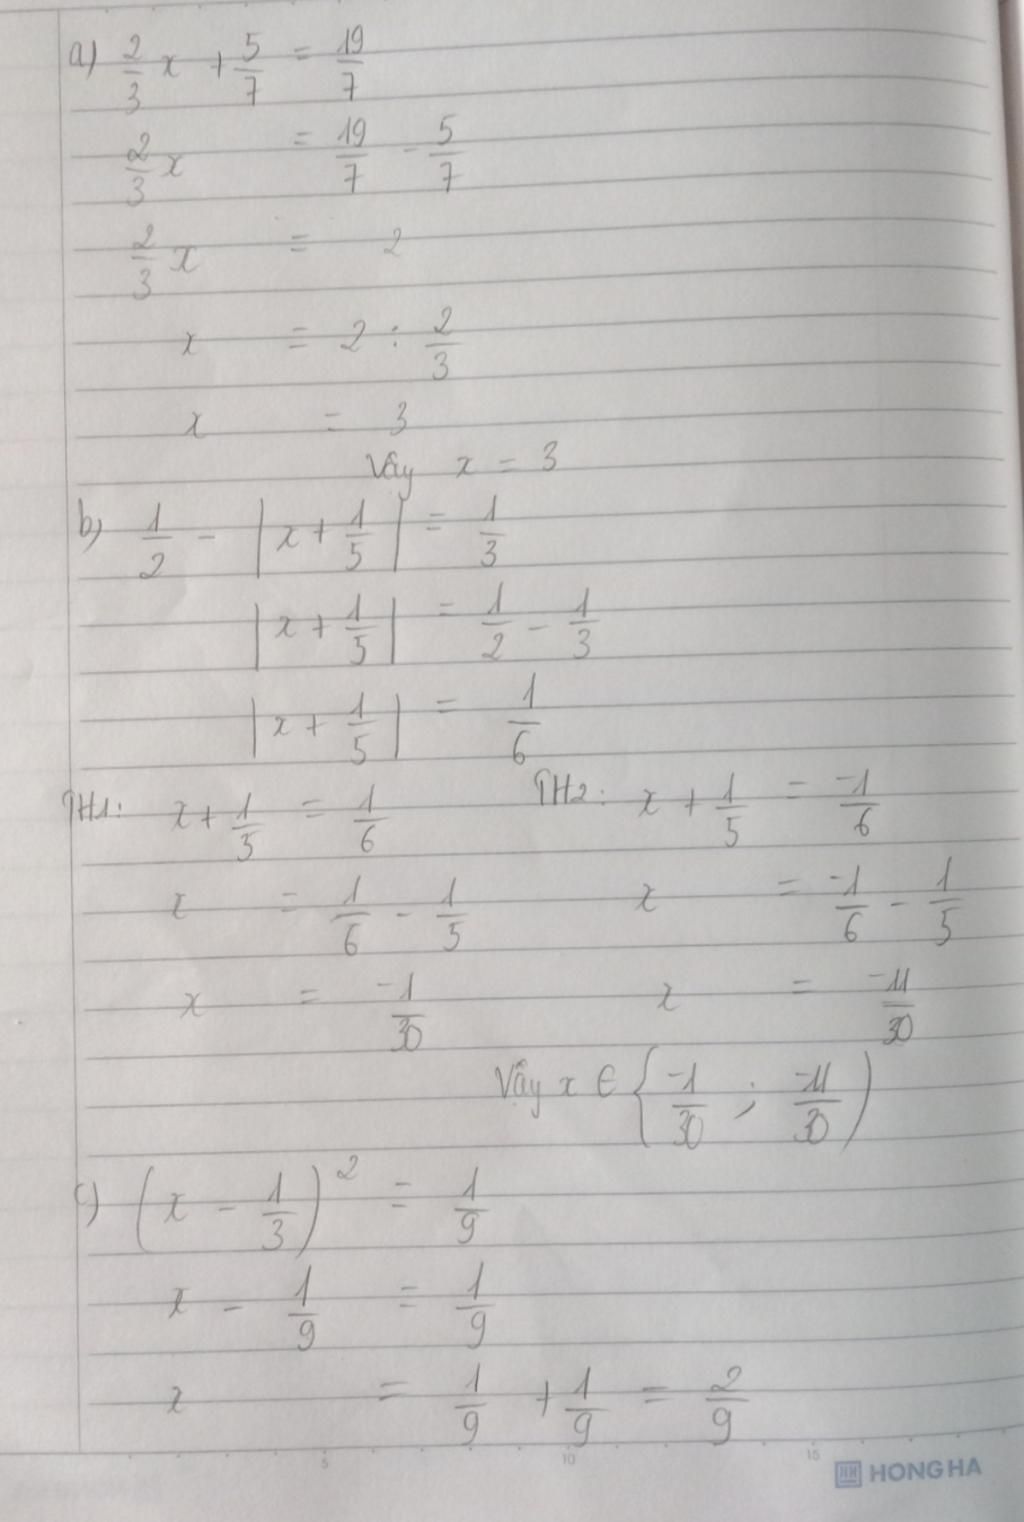 a) 2/3 x + 5/7 = 19/7
2/3 x = 19/7 - 5/7
2/3 x = 2
x = 2 : 2/3
x = 3
Vậy x = 3
b) 1/2 - |x + 1/5| = 1/3
|x + 1/5| = 1/2 - 1/3
|x + 1/5| = 1/6
TH1: x + 1/5 = 1/6 TH2: x + 1/5 = -1/6
x = 1/6 - 1/5 x = -1/6 - 1/5
x = -1/30 x = -11/30
Vậy x ∈ {-1/30 ; -11/30)
c) (x - 1/3)² = 1/9
x - 1/9 = 1/9
x = 1/9 + 1/9 = 2/9
5 10 15
HONG HA